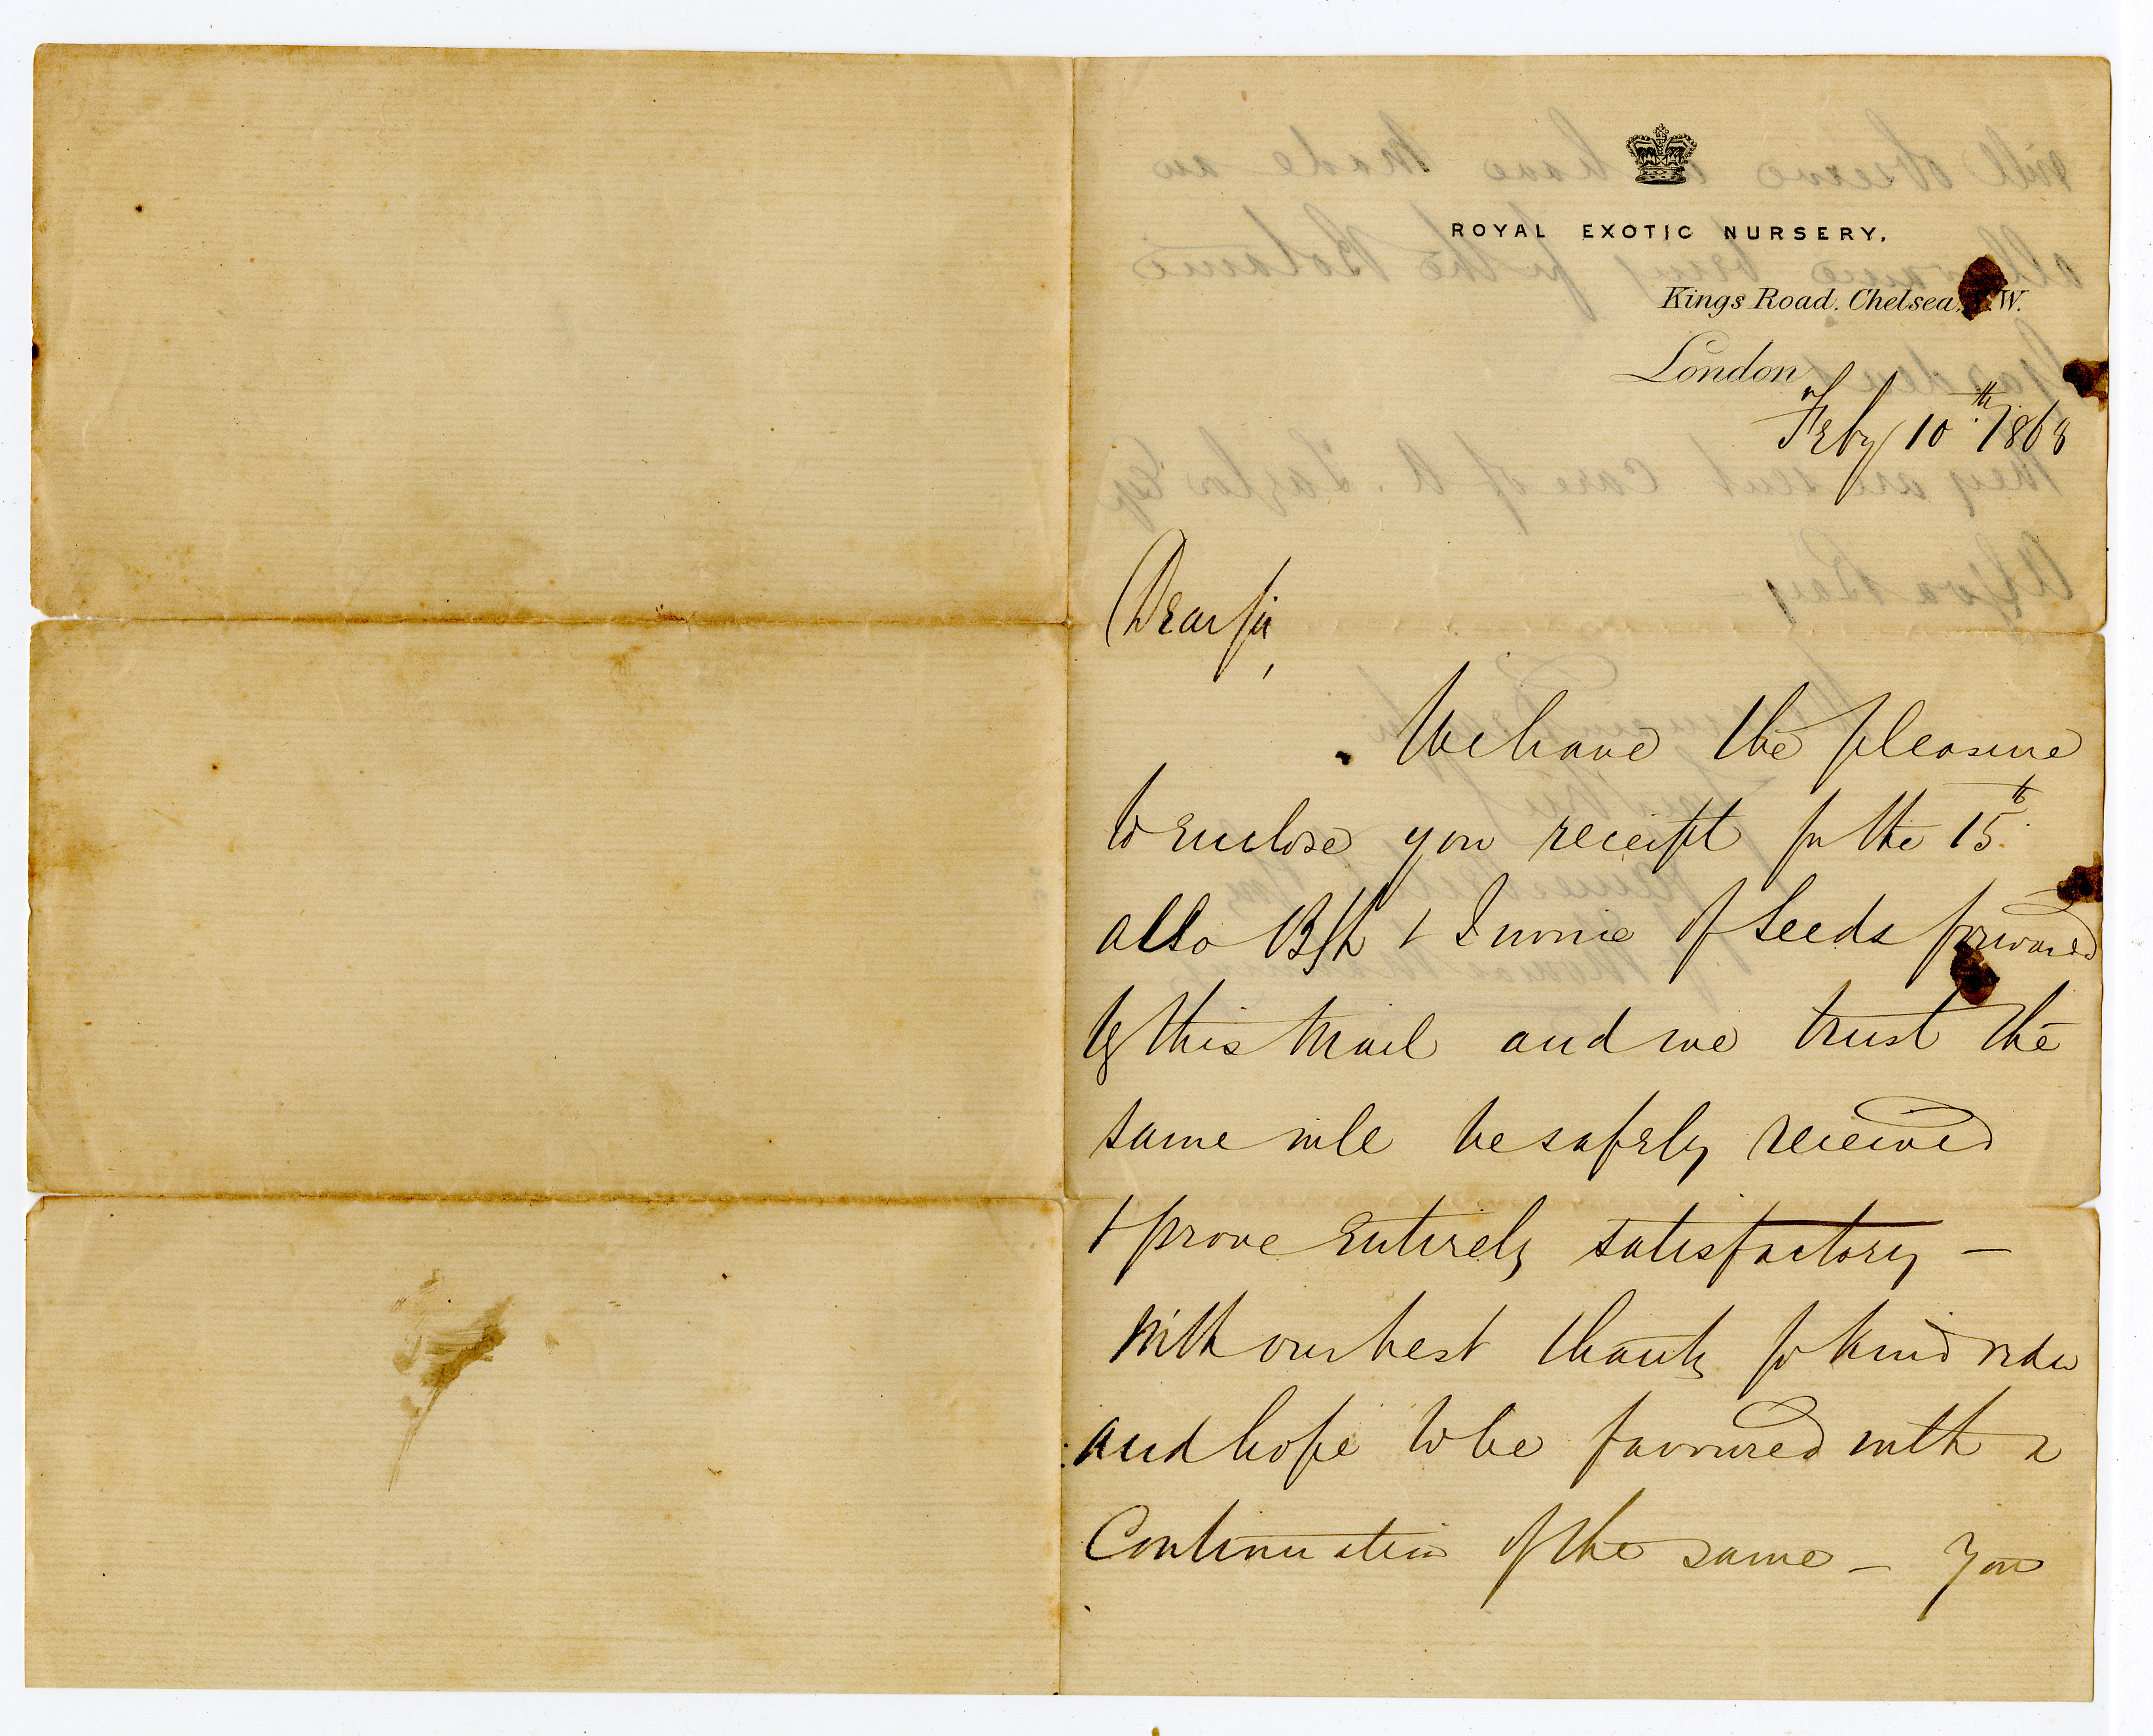 ROYAL EXOTIC NURSERY.
Kings Road, Chelsea, W.
London
Feby 10th 1868
Dear Sir,
We have the pleasure
to enclose you receipt for the 15th
also B/L & Invoice of Seeds forwarded
by this Mail and we trust the
same will be safely received
& prove entirely satisfactory —
With our best thanks for kind order
and hope to be favoured with a
Continuation of the same — You